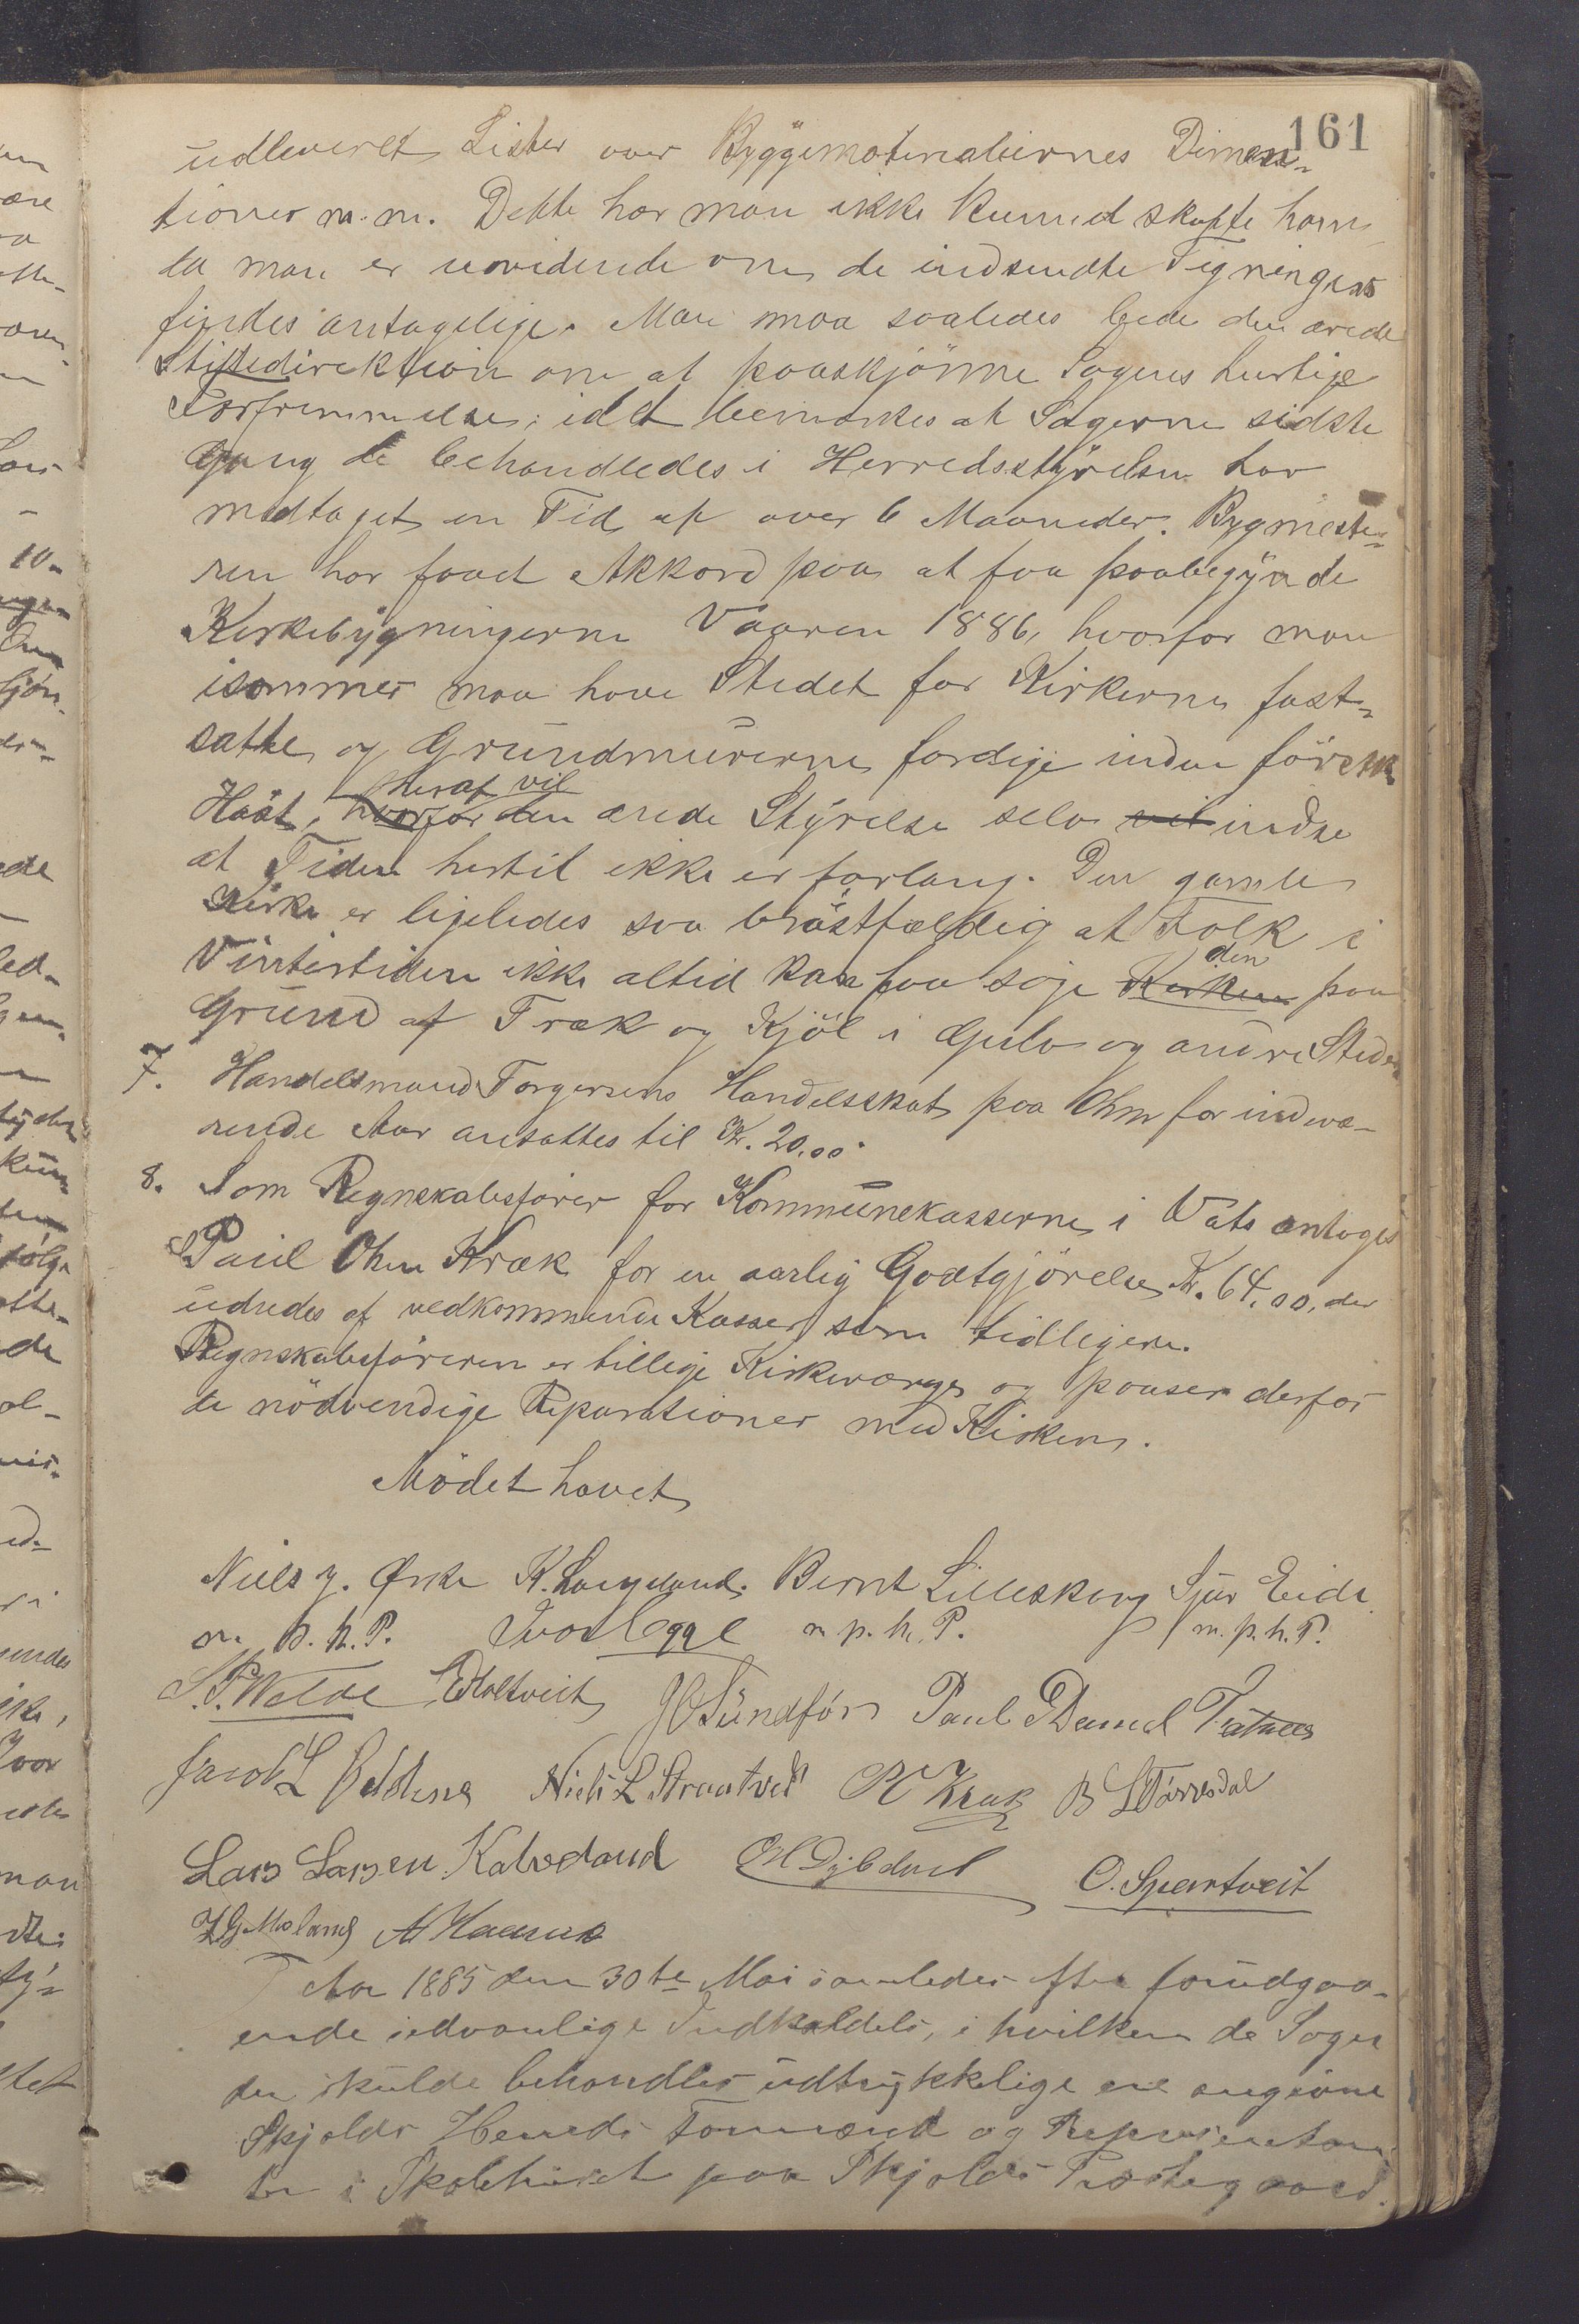 161
udleveret Lister over Byggematerialiernes Dimen-
tioner m.m. Dette har man ikke kunnet skaffe ham
da man er uvidende om de indsendte Tegninger
findes antagelige. Man maa saaledes bede den ærede
Stiftsdirektion om at paaskjönne Sagens hurtige
Forfremmelse; idet bemærkes at Sagerne sidste
Gang de behandledes i Herredsstÿrelsen har
medtaget en Tid af over 6 Maaneder. Bygmeste-
ren har faaet Akkord paa at faa paabegÿnde
Kirkebÿgningerne Vaaren 1886, hvorfor man
isommer maa have Stedet for Kirkerne fast-
satte og Grundmurerne færdige inden förstk
heraf vil
Höst, hvorfor den ærede Stÿrelse selv vil indse
at Tiden hertil ikke er forlang. Den gamle
Kirke er ligeledes saa bröstfældig at Folk i
den
Vintertiden ikke altid kan faa söge Kirken paa
Grund af Træk og Kjöl i Gulv og andre Steder
7. Handelsmand Torgersens Handelsskat paa Ohm for indevæ-
rende Aar ansattes til Kr. 20,00.
8. Som Regnskabsförer for Kommunekasserne i Vats antoges
Paul Ohm Kræk for en aarlig Godtgjörelse Kr. 64,00, der
udredes af vedkommende Kasser som tidligere.
Regnskabsföreren er tillige Kirkeværge og paaser derfor
de nödvendige Reparationer med Kirken.
Mödet hævet
Niels J. Ørke K. Langeland. Bernt Lilleskog Sjur Eide
m. p. h. P. Ivar Egge m. p. h. P. m. p. h. P.
Eholtveit J O Sundför Paul Daniel
Jacob L Niels L Straatveit P O Kræk
Lars Larsen Kalveland O. Svartveit
Aar 1885 den 30te Mai samledes efter forudgaa-
ende sedvanlige Indkaldelse, i hvilken de Sager
der skulde behandles udtrykkelige ere angivne
Skjolds Herreds Formænd og Repræsentan-
ter i Skolehuset paa Skjolds Præstegaard.